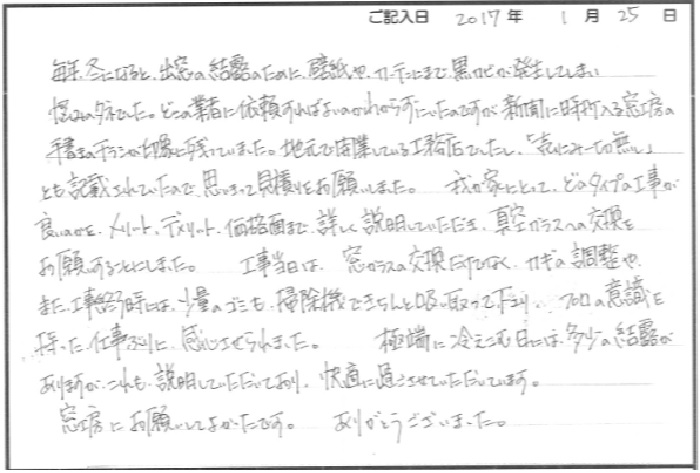 ご記入日 2017年 1月 25日
毎年、冬になると、出窓の結露のために、壁紙や、カーテンにまで黒カビが発生してしまい
悩みのタネでした。どこの業者に依頼すればよいのかわからずにいたのですが新聞に時折入る窓工房の
手書きのチラシが印象に残っていました。地元で開業している工務店でしたし、
とも記載されていたので、思いきって見積りをお願いしました。 我が家にとって、どのタイプの工事が
良いのかを、メリット、デメリット、価格面まで、詳しく説明していただき、真空ガラスへの交換を
お願いすることにしました。 工事当日は、窓ガラスの交換だけでなく、カギの調整や、
また、工事終了時には、少量のゴミも、掃除機できちんと吸い取って下さり、プロの意識を
持った仕事ぶりに、感心させられました。 極端に冷えこむ日には、多少の結露が
ありますが、これも、説明していただいており、快適に過ごさせていただいています。
窓工房にお願いしてよかったです。 ありがとうございました。